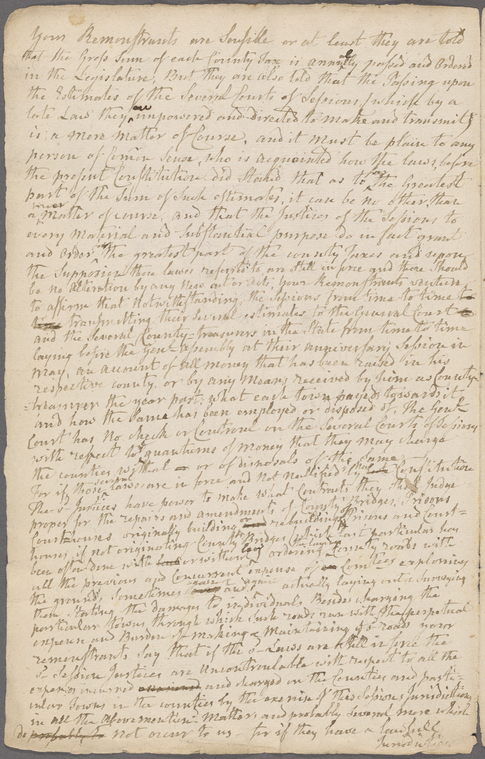 Your Remonstrants are Sensible or at least they are told
that the Gross Sum of each County Tax is annually passed and Ordered
in the Legislature, But they are also told that the Passing upon
the Estimates of the Several Courts of Sessions, which by a
late Law they are empowered and directed to make and transmit,
is a mere Matter of Course, and it must be plain to any
person of Com̄on Sense, who is acquainted how the laws, before
the present Constitution did Stand that as to the Greatest
part of the Sum of Such estimates, it can be no other than
a matter of course, and that the Justices of the Sessions to
every Material and Substantial purpose do in fact grant
and Order, the greatest part of the county Taxes and upon
the Supposition those lawes referred to are Still in force and there Should
be no Alteration by any New act or acts, Your Remonstrants venture
to affirm that Notwithstanding, the Sessions from time to time
transmitting their Several estimates to the General Court
and the Several County-treasurers in the State from time to time
laying before the Genl assembly at their anniversary Session in
may, an account of all money that has been raised in his
respective county, or by any Means received by him as County
-treasurer the year past, what each town payed towards it,
and how the Same has been employed or disposed of, the Genl
Court has no check or Controul on the Several Courts of Sessions
with respect to quantums of Money that they may charge
the counties with or of disposals of the Same
For if those laws are in force and not nullified Constitution
The sd Justices have power to make what Contract they Judge
proper for the repairs and amendments of County Bridges, Prisons
Courthouses originally building or rebuilding Prisons and Court-
houses if not originating County Bridges, which last particular how
been often done with or without ordering County roads with
all the previous and Concurrent expence of Com̄tees exploring
the ground, Sometimes again actually laying out & Surveying
them Stating the damage to individuals Besides charging the
particular towns through which Such roads run with the perpetual
expence and Burden of making & Maintaining sd roads now
remonstrants Say that if the sd Laws are still in force the
Sd Session Justices are Uncontroulable with respect to all the
expence incurred and charged on the Counties and parti-
cular Towns in the counties by the exercise of the Sessions Jurisdiction,
in all the abovemention'd Matters and probably Several more which
do not occur to us — for if they have a lawfull
Jurisdiction